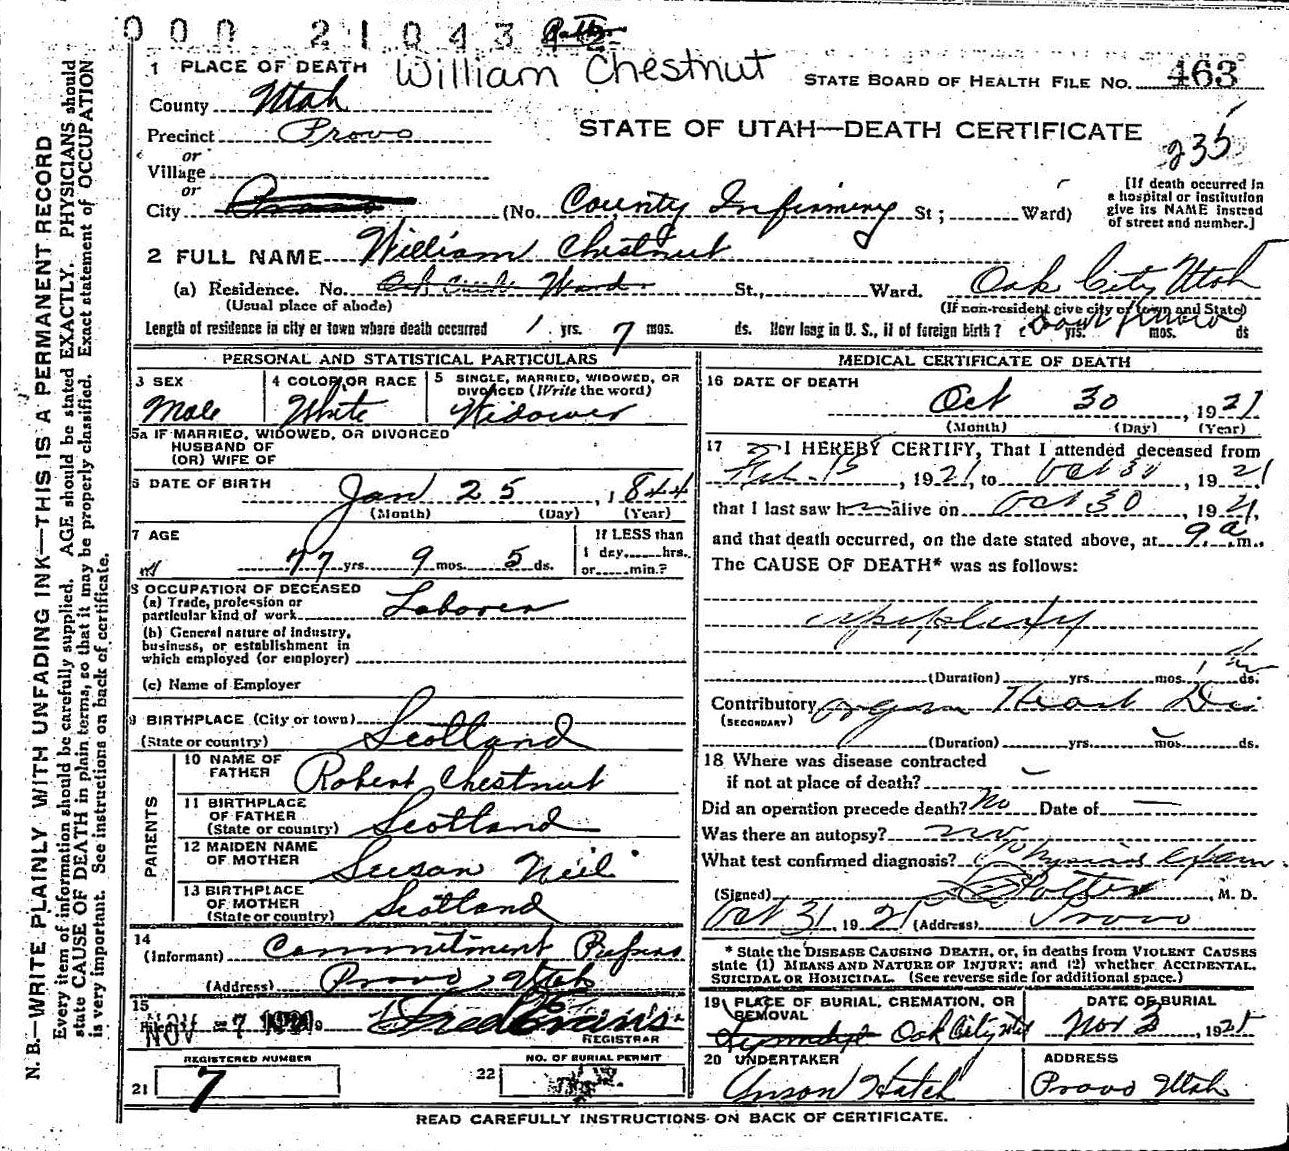 000 21043
1 PLACE OF DEATH William Chestnut STATE BOARD OF HEALTH FILE No. 463
County Utah
Precinct Provo STATE OF UTAH—DEATH CERTIFICATE
235
or
Village
or
City Provo (No. County Infirmery St; Ward)
[If death occurred in a hospital or institution give its NAME instead of street and number.]
2 FULL NAME William Chestnut
(a) Residence. No. Ward St., Ward. Oak City Utah
(Usual place of abode) (If non-resident give city or town and State)
Length of residence in city or town where death occurred 1 yrs. 7 mos. ds. How long in U. S., if of foreign birth? yrs. mos. ds
PERSONAL AND STATISTICAL PARTICULARS
3 SEX 4 COLOR OR RACE 5 SINGLE, MARRIED, WIDOWED, OR DIVORCED (Write the word)
Male White Widower
5a IF MARRIED, WIDOWED, OR DIVORCED
HUSBAND OF
(OR) WIFE OF
6 DATE OF BIRTH Jan 25, 1844
(Month) (Day) (Year)
7 AGE 77 yrs 9 mos. 5 ds.
If LESS than
1 day, hrs.
or min.?
8 OCCUPATION OF DECEASED
(a) Trade, profession or
particular kind of work Laborer
(b) General nature of industry,
business, or establishment in
which employed (or employer)
(c) Name of Employer
9 BIRTHPLACE (City or town)
(State or country) Scotland
PARENTS
10 NAME OF FATHER Robert Chestnut
11 BIRTHPLACE OF FATHER
(State or country) Scotland
12 MAIDEN NAME OF MOTHER Susan Neil
13 BIRTHPLACE OF MOTHER
(State or country) Scotland
14
(Informant) Commitment
(Address) Provo, Utah
15
Filed NOV 7
REGISTRAR
REGISTERED NUMBER NO. OF BURIAL PERMIT
21 7 22
MEDICAL CERTIFICATE OF DEATH
16 DATE OF DEATH
Oct 30, 1921
(Month) (Day) (Year)
17 I HEREBY CERTIFY, That I attended deceased from
Feb. 15, 1921, to Oct 30, 1921
that I last saw h alive on Oct 30, 1921,
and that death occurred, on the date stated above, at 9 a m.
The CAUSE OF DEATH* was as follows:
apoplexy
(Duration) yrs. mos. ds.
Contributory Heart
(SECONDARY)
(Duration) yrs. mos. ds.
18 Where was disease contracted
if not at place of death?
Did an operation precede death? No Date of —
Was there an autopsy? no
What test confirmed diagnosis?
(Signed) M. D.
Oct 31, 1921 (Address) Provo
* State the DISEASE CAUSING DEATH, or, in deaths from VIOLENT CAUSES
state (1) MEANS AND NATURE OF INJURY; and (2) whether ACCIDENTAL,
SUICIDAL OR HOMICIDAL. (See reverse side for additional space.)
19 PLACE OF BURIAL, CREMATION, OR REMOVAL DATE OF BURIAL
Oak City Utd Nov 3, 1921
20 UNDERTAKER ADDRESS
Anson Hatch Provo Utah
READ CAREFULLY INSTRUCTIONS ON BACK OF CERTIFICATE.
N. B.—WRITE PLAINLY WITH UNFADING INK—THIS IS A PERMANENT RECORD
Every item of information should be carefully supplied. AGE should be stated EXACTLY. PHYSICIANS should
state CAUSE OF DEATH in plain terms, so that it may be properly classified. Exact statement of OCCUPATION
is very important. See instructions on back of certificate.